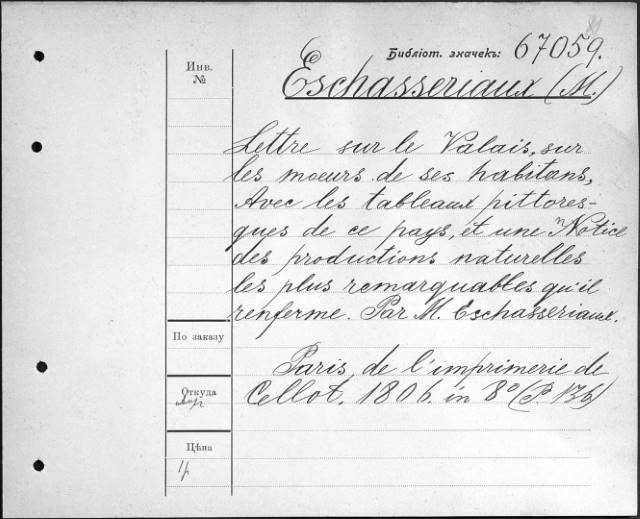 Библіот. значекъ: 67059.
Инв. №
Eschasseriaux (M.)
Lettre sur le Valais, sur
les moeurs de ses habitans,
Avec les tableaux pittores-
ques de ce pays, et une Notice
des productions naturelles
les plus remarquables qu'il
renferme. Par M. Eschasseriaux.
По заказу
Paris, de l'imprimerie de
Откуда
Cellot, 1806. in 8º (P. 136)
Цѣна